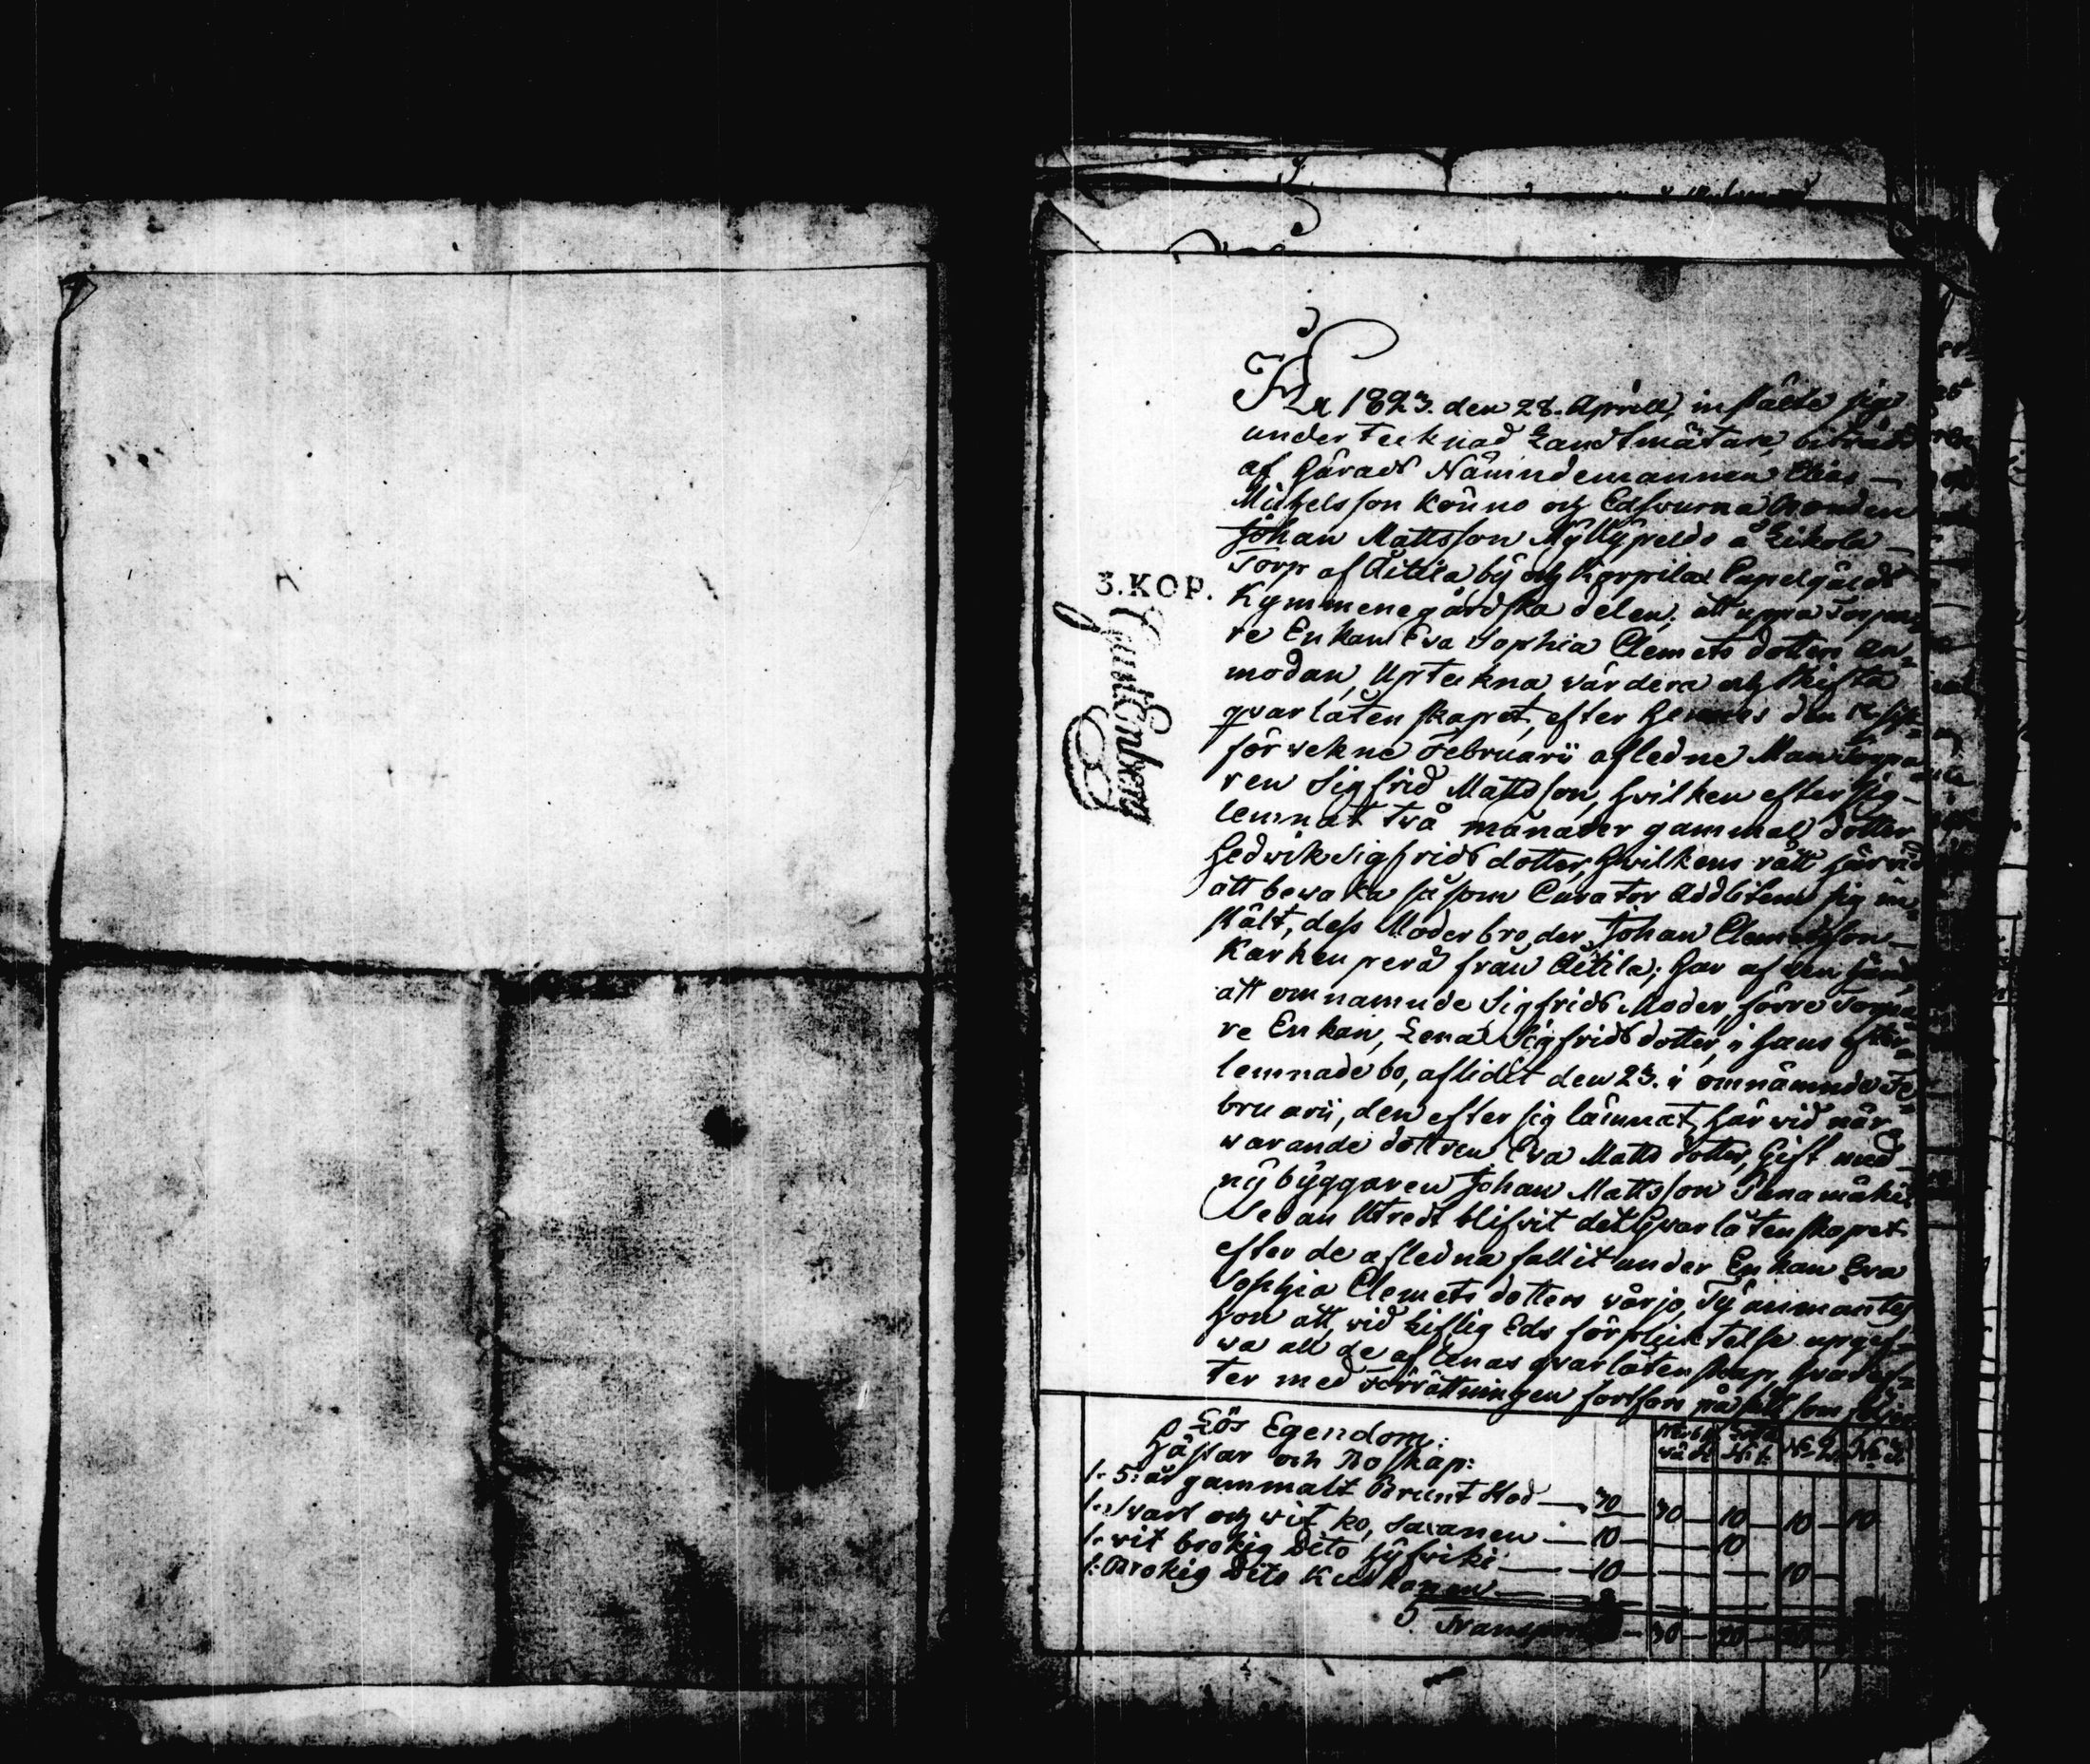 År 1823. den 28. Aprill, instälte sig
undertecknad Landtmätare, biträdd
af Härads Nämindemannen Elias —
Michelsson Könno och Edsvurna Bonden
Johan Mattsson Mÿllÿpeldo å Leikola —
Torp af Äitila bÿ och Karpilax Capelgälds
Kymmenegårdska delen; att uppå Torpa=
re Enkan Eva Sophia Clemets dotters an=
modan, Uptekna, värdera och skifta
qvarlåtenskapet, efter hennes den
förvekne Februarii afledne Man Torpa
ren Sigfrid Mattsson, hvilken efter sig —
lemnat två månader gammal dotter
Hedvik Sigfrids dotter, hvilkens rätt härvid
att bevaka såsom Curator Addlitem sig in=
stält, dess Moderbroder, Johan Clemetsson —
Karhunperä från Äitila; har af den händ,
att omnämnde Sigfrids Moder, förre Torpa
re Enkan, Lena Sigfrids dotter, i hans efter=
lemnade bo, aflidit den 23. i omnämnde Fe=
bruarii, den efter sig lämnat, här vid när=
warande dottren Eva Matts dotter, Gift med
nÿbÿggaren Johan Mattsson
Sedan Utredt blifvit det Qvarlåtenskapet
efter de afledna fallit under Enkan Eva
Sophia Clemets dotters vårjo, Tÿ animantes
hon att, vid Liflig Eds förpliktelse upgif=
wa all de aflenas qvarlåtenskap, hvaref=
ter med Förrättningen fortfors på sätt som följer
3. KOP.
Lös Egendom:
Hästar och Boskap:
N: 1. N: 2. N: 3.
1. 5: år gammalt Brunt Stod — 30 — 30 — 10 — 10 — 10
1. Svart och vit ko, — 10 — 10
1. vit brokig Dito — 10 — 10 —
1. Brokig Dito
Transport — 30 —